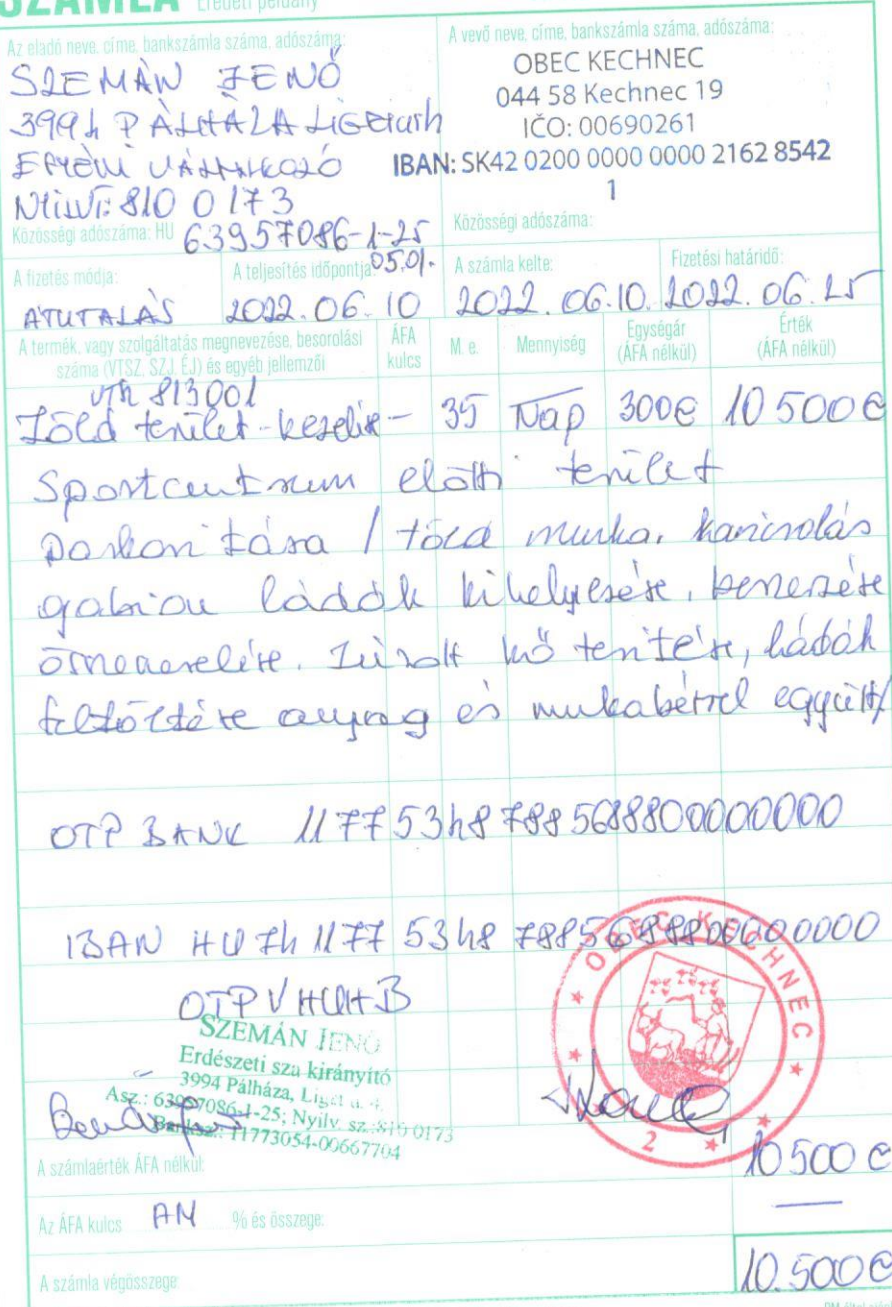 SZÁMLA Eredeti példány
Az eladó neve, címe, bankszámla száma, adószáma:
SZEMÁN JENŐ
3994 PÁLHÁZA LIGET
EGYÉNI VÁLLALKOZÓ
810 0173
Közösségi adószáma: HU 63957086-1-25
A vevő neve, címe, bankszámla száma, adószáma:
OBEC KECHNEC
044 58 Kechnec 19
IČO: 00690261
IBAN: SK42 0200 0000 0000 2162 8542
1
Közösségi adószáma:
A fizetés módja:
ÁTUTALÁS
A teljesítés időpontja: 05.01.
2022.06.10
A számla kelte:
2022.06.10.
Fizetési határidő:
2022.06.25
A termék, vagy szolgáltatás megnevezése, besorolási száma (VTSZ, SZJ, ÉJ) és egyéb jellemzői
ÁFA kulcs
M. e.
Mennyiség
Egységár (ÁFA nélkül)
Érték (ÁFA nélkül)
813001
Zöld terület-kezelés - 35 Nap 300€ 10 500€
Sportcentrum előtti terület
/ föld munka,
gabion ládák kihelyezése,
Zúzott kő terítése, ládák
feltöltése anyag és munkabérrel együtt/
OTP BANK 11775348 7885688800000000
IBAN HU74 1177 5348 7885688800000000
OTPVHUHB
SZEMÁN JENŐ
Erdészeti sza kirányító
3994 Pálháza, Liget u. 4.
Asz.: 63957086-1-25; Nyilv. sz.:810 0173
11773054-00667704
OBEC KECHNEC
2
A számlaérték ÁFA nélkül:
10 500 €
Az ÁFA kulcs AM % és összege: —
A számla végösszege:
10.500€